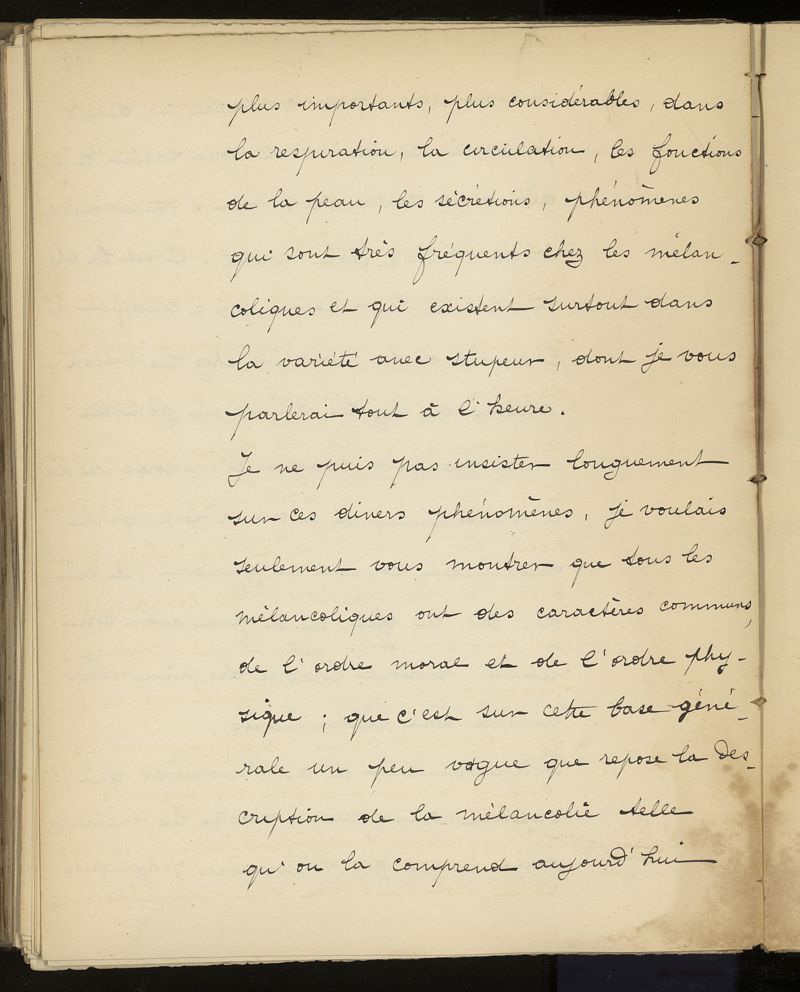 plus importants, plus considérables, dans
la respiration, la circulation, les fonctions
de la peau, les sécrétions, phénomènes
qui sont très fréquents chez les mélan-
coliques et qui existent surtout dans
la variété avec stupeur, dont je vous
parlerai tout à l'heure.
Je ne puis pas insister longuement
sur ces divers phénomènes, je voulais
seulement vous montrer que tous les
mélancoliques ont des caractères communs,
de l'ordre moral et de l'ordre phy-
sique ; que c'est sur cette base géné-
rale un peu vague que repose la des-
cription de la mélancolie telle
qu'on la comprend aujourd'hui